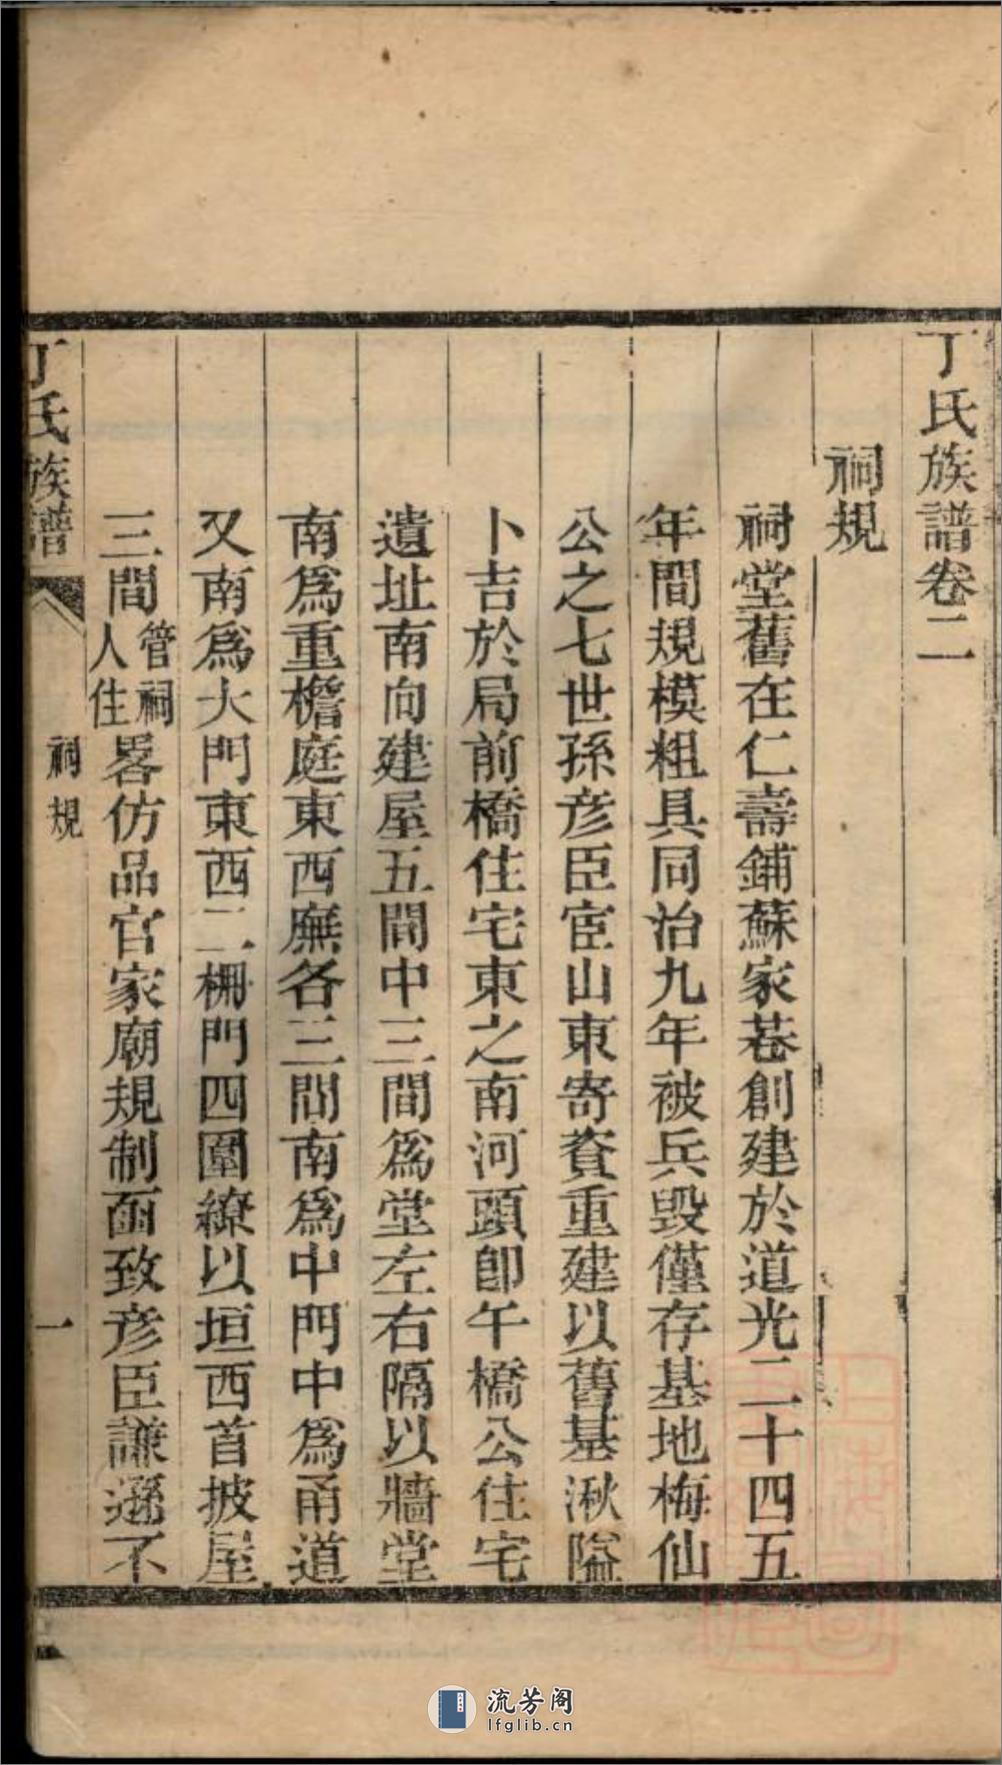 丁氏族譜卷二
祠規
祠堂舊在仁壽鋪蘇家巷創建於道光二十四五
年間規模粗具同治九年被兵毀僅存基地梅仙
公之七世孫彥臣宦山東寄資重建以舊基湫隘
卜吉於局前橋住宅東之南河頭卽午橋公住宅
遺址南向建屋五間中三間爲堂左右隔以牆堂
南爲重檐庭東西廡各三間南爲中門中爲甬道
又南爲大門東西二柵門四圍繚以垣西首披屋
三間管祠人住畧仿品官家廟規制函致彥臣謙遜不
丁氏族譜
祠規
一
流芳阁
lfglib.cn